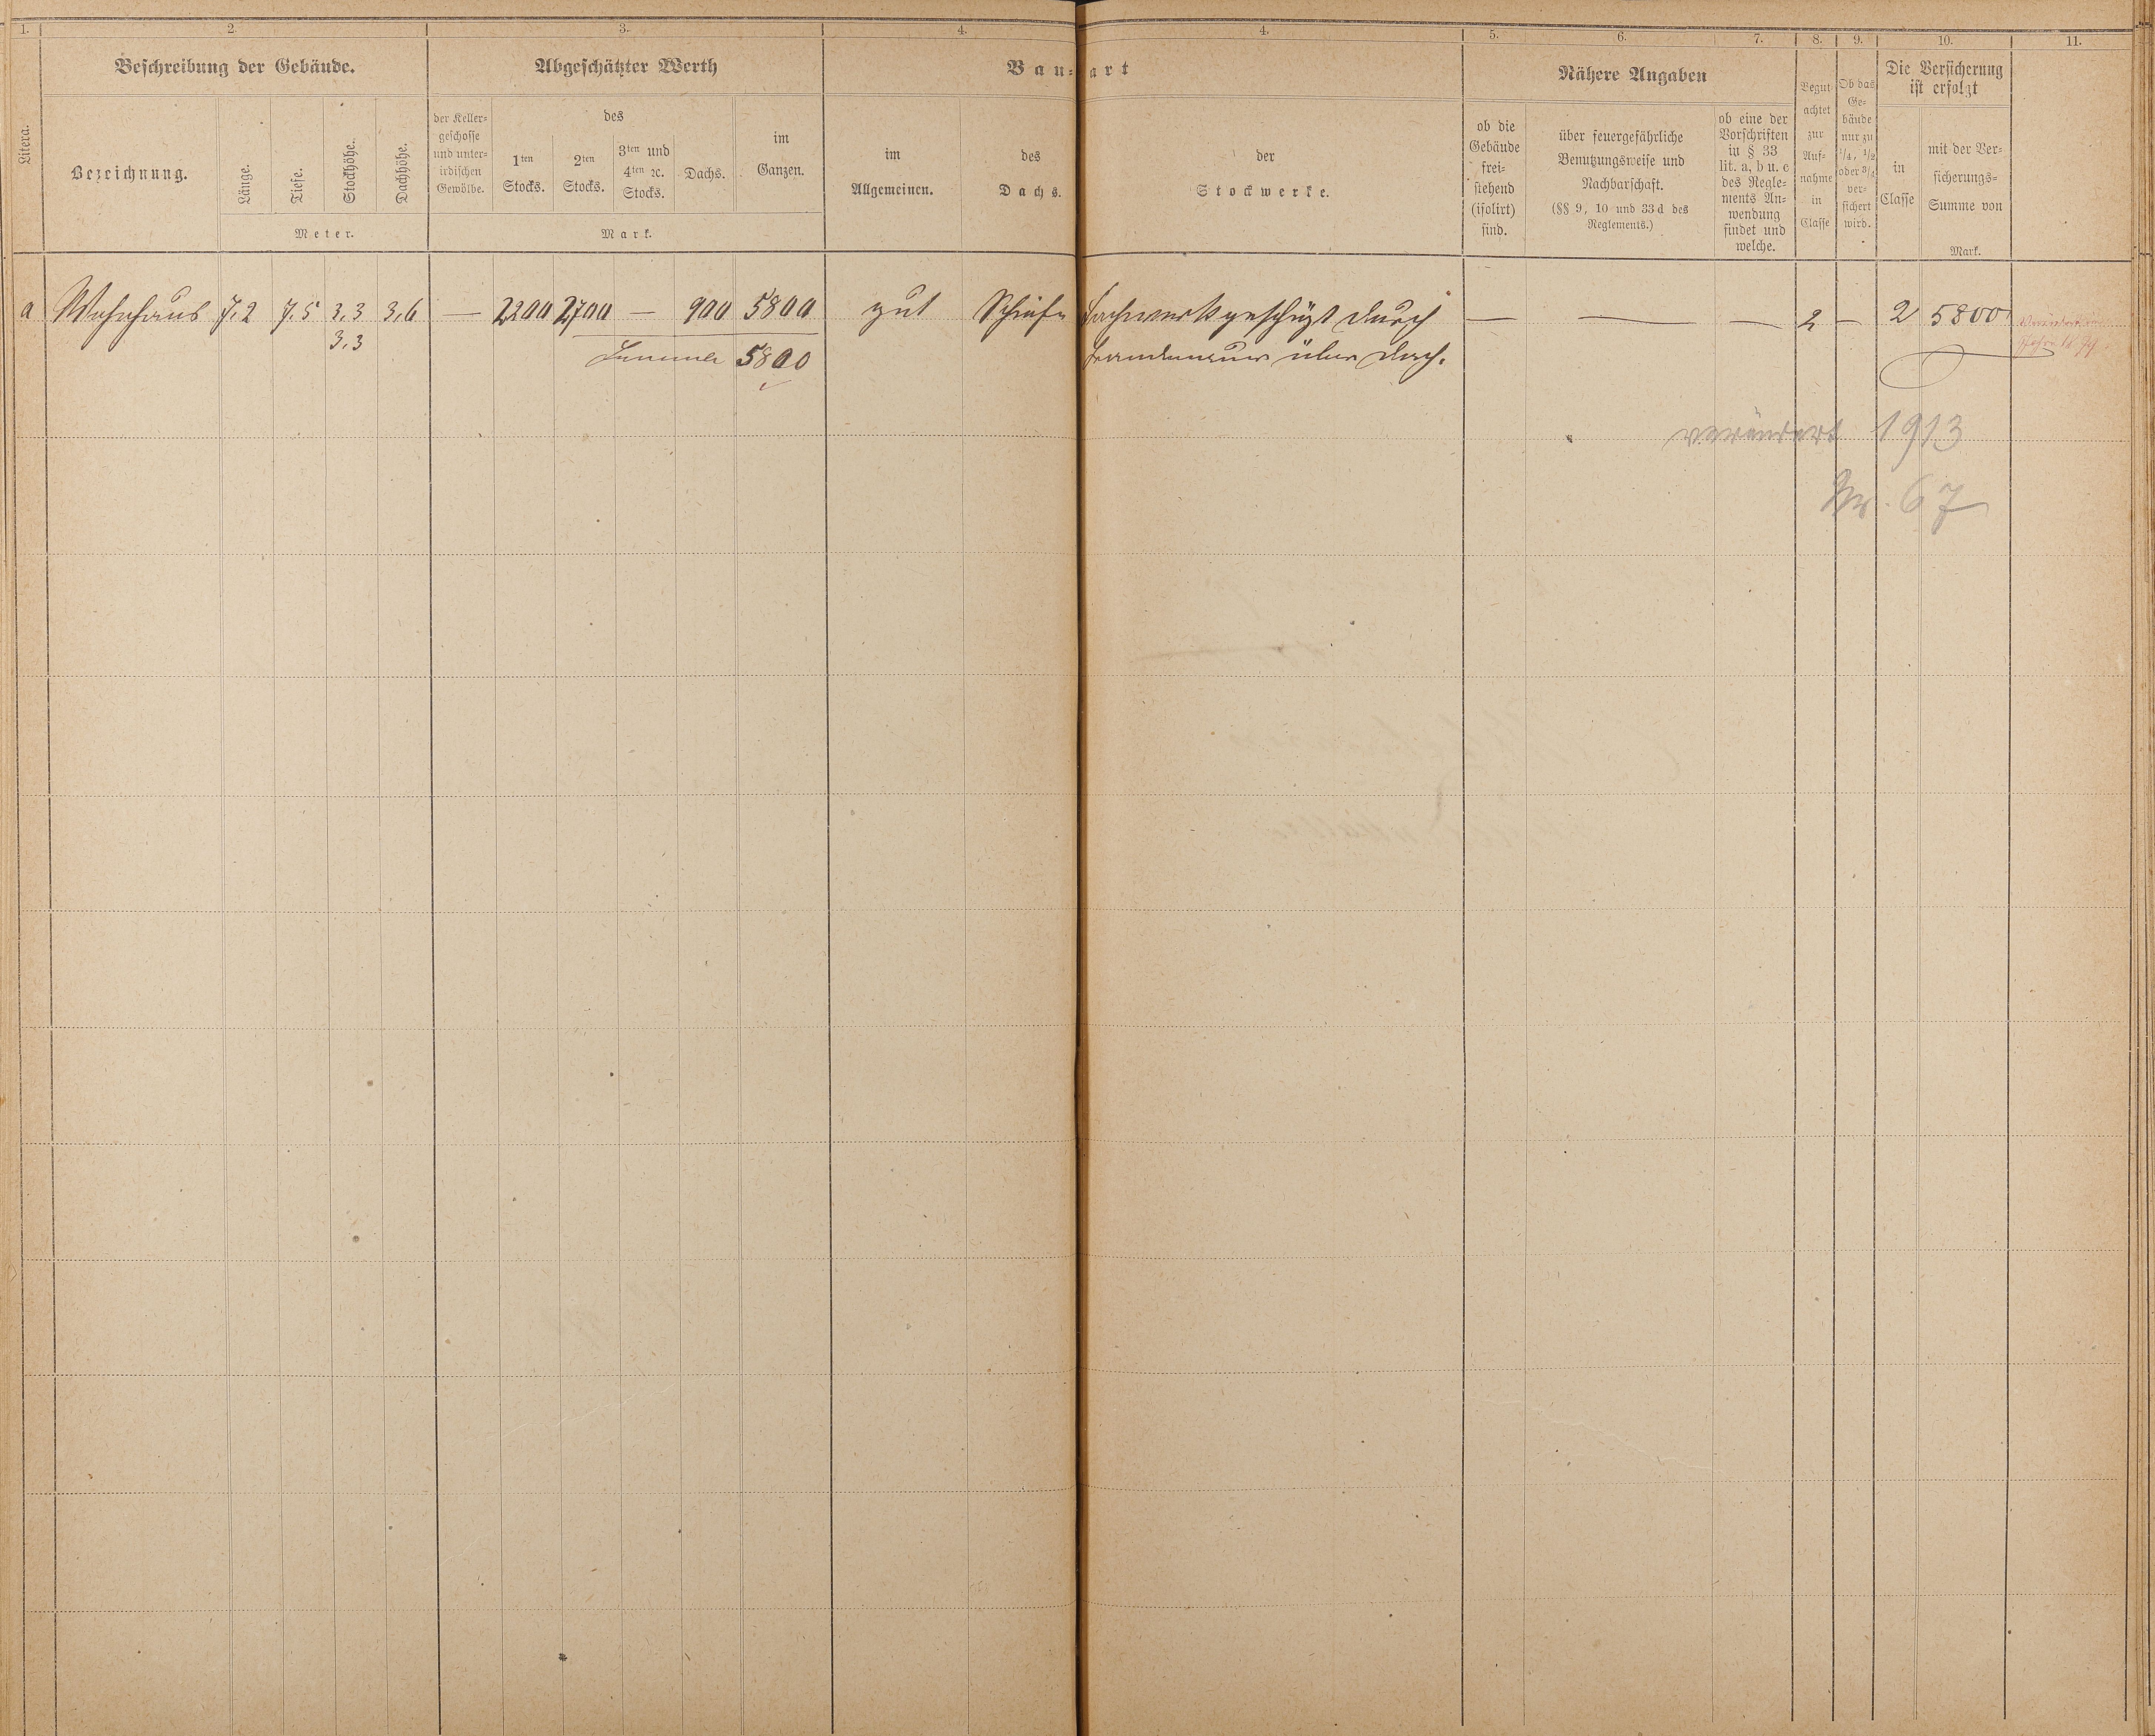 1. 2. 3. 4. 4. 5. 6. 7. 8. 9. 10. 11.
Litera.
Beschreibung der Gebäude.
Bezeichnung.
Länge.
Tiefe.
Stockhöhe.
Dachhöhe.
Meter.
Abgeschätzter Werth
der Keller-
geschosse
und unter-
irdischen
Gewölbe.
des
1ten
Stocks.
2ten
Stocks.
3ten und
4ten ꝛc.
Stocks.
Dachs.
im
Ganzen.
Mark.
Bau-art
im
Allgemeinen.
des
Dachs.
der
Stockwerke.
Nähere Angaben
ob die
Gebäude
frei-
stehend
(isolirt)
sind.
über feuergefährliche
Benutzungsweise und
Nachbarschaft.
(§§ 9, 10 und 33 d des
Reglements.)
ob eine der
Vorschriften
in § 33
lit. a, b u. c
des Regle-
ments An-
wendung
findet und
welche.
Begut-
achtet
zur
Auf-
nahme
in
Classe
Ob das
Ge-
bäude
nur zu
1/4, 1/2
oder 3/4
ver-
sichert
wird.
Die Versicherung
ist erfolgt
in
Classe
mit der Ver-
sicherungs-
Summe von
Mark.
a Wohnhaus 7,2 7,5 3,3 3,6 — 2200 2700 — 900 5800 gut Schiefer Fachwerk geschüzt durch — — — 2 — 2 5800 Verändert im
3,3 Summa 5800 Brandmauer über Dach. Jahre
verändert 1913
Nr. 67